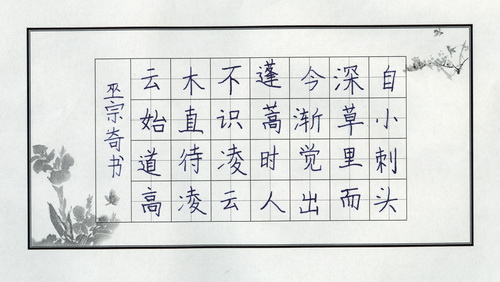 自小刺头
深草里而
今渐觉出
蓬蒿时人
不识凌云
木直待凌
云始道高
巫宗奇书